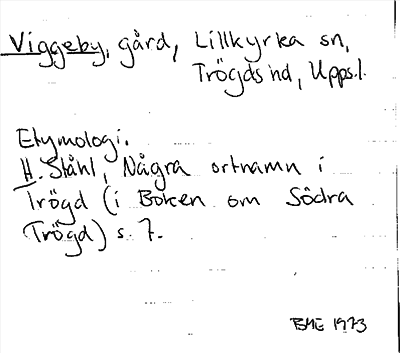 Viggeby, gård, Lillkyrka sn,
Trögds hd, Upps.l.
Etymologi.
H. Ståhl, Några ortnamn i
Trögd (i Boken om Södra
Trögd) s. 7.
BME 1973